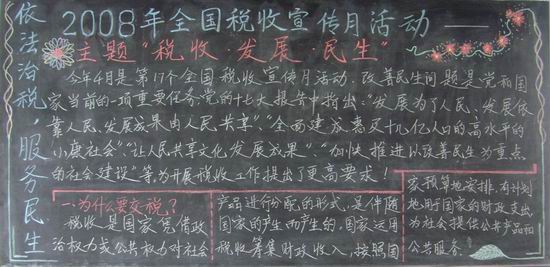 依法治税,服务民生
2008年全国税收宣传月活动——
主题“税收·发展·民生”
今年4月是第17个全国税收宣传月活动,改善民生问题是党和国
家当前的一项重要任务党的十七大报告中指出:“发展为了人民、发展依
靠人民、发展成果由人民共享”、“全面建成惠及十几亿人口的高水平的
小康社会”、“让人民共享文化发展成果”“加快推进以改善民生为重点
的社会建设”等,为开展税收工作提出了更高要求!
一.为什么要交税?
税收是国家凭借政
治权力或公共权力对社会
产品进行分配的形式,是伴随
国家的产生而产生的,国家运用
税收筹集财政收入,按照国
家预算地安排,有计划
地用于国家的财政支出,
为社会提供公共产品和
公共服务.